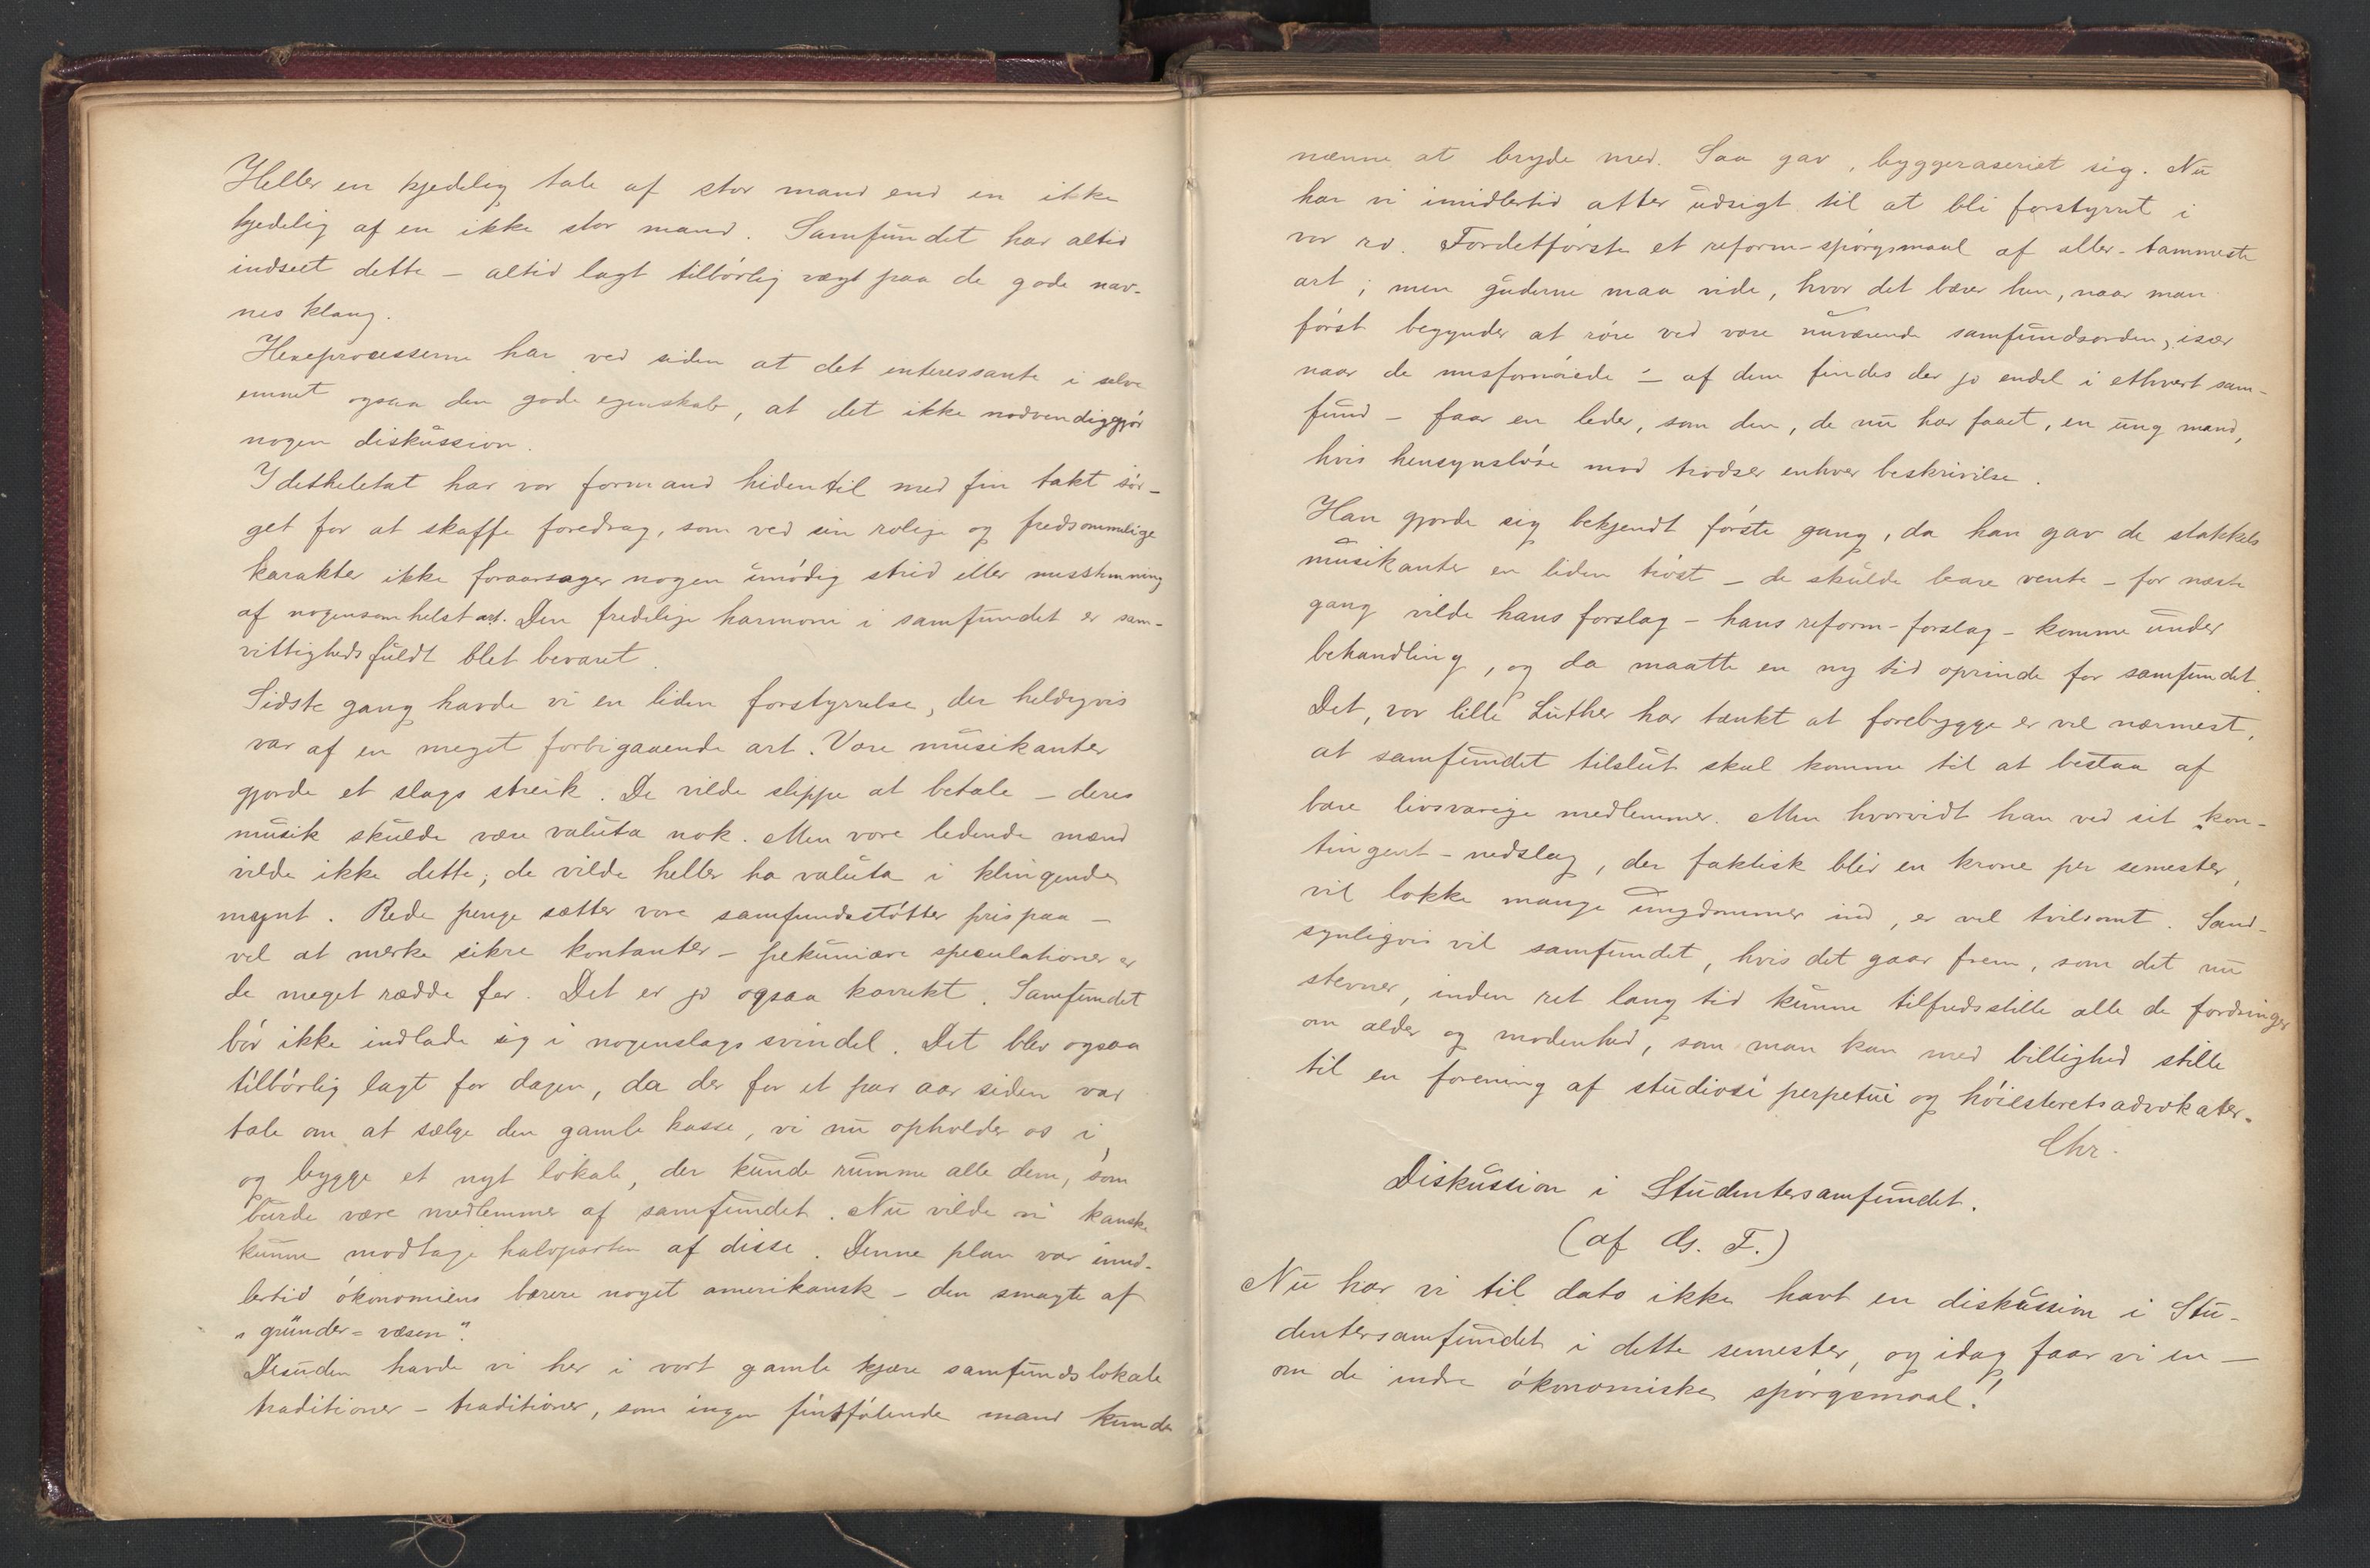 Heller en kjedelig tale af stor mand end en ikke
kjedelig af en ikke stor mand. Samfundet har altid
indseet dette – altid lagt tilbørlig vægt paa de gode nav-
nes klang.
Hexeprocesserne har ved siden at det interessante i selve
emnet ogsaa den gode egenskab, at det ikke nødvendiggjør
nogen diskussion.
I detheletat har vor formand hidentil med fin takt sør-
get for at skaffe foredrag, som ved sin rolige og fredsommelige
karakter ikke foraarsager nogen unødig strid eller misstemning
af nogensomhelst art. Den fredelige harmoni i samfundet er sam-
vittighedsfuldt blet bevaret.
Sidste gang havde vi en liden forstyrrelse, der heldigvis
var af en meget forbigaaende art. Vore musikanter
gjorde et slags streik. De vilde slippe at betale – deres
musik skulde være valuta nok. Men vore ledende mænd
vilde ikke dette; de vilde heller ha valuta i klingende
mynt. Rede penge sætter vore samfundsstøtter pris paa –
vel at merke sikre kontanter – pekuniære speculationer er
de meget rædde for. Det er jo ogsaa korrekt. Samfundet
bør ikke indlade sig i nogenslags svindel. Det blev ogsaa
tilbørlig lagt for dagen, da der for et par aar siden var
tale om at sælge den gamle kasse, vi nu opholder os i,
og bygge et nyt lokale, der kunde rumme alle dem, som
burde være medlemmer af samfundet. Nu vilde vi kanske
kunne modtage halvparten af disse. Denne plan var imid-
lertid økonomiens bærere noget amerikansk – den smagte af
„gründer-væsen“.
Desuden havde vi her i vort gamle kjære samfundslokale
traditioner – traditioner, som ingen fintfølende mand kunde
nænne at bryde med. Saa gav byggeraseriet sig. Nu
har vi imidlertid atter udsigt til at bli forstyrret i
vor ro. Fordetførste et reform-spørgsmaal af aller-tammeste
art; men guderne maa vide, hvor det bærer hen, naar man
først begynder at røre ved vore nuværende samfundsorden, især
naar de misfornøiede – af dem findes der jo endel i ethvert sam-
fund – faar en leder, som den, de nu har faaet, en ung mand,
hvis hensynsløse mod trodser enhver beskrivelse.
Han gjorde sig bekjendt første gang, da han gav de stakkels
musikanter en liden trøst – de skulde bare vente – for næste
gang vilde hans forslag – hans reform-forslag – komme under
behandling, og da maatte en ny tid oprinde for samfundet.
Det, vor lille Luther har tænkt at forebygge er vel nærmest,
at samfundet tilslut skal komme til at bestaa af
bare livsvarige medlemmer. Men hvorvidt han ved sit kon-
tingent-nedslag, der faktisk blir en krone per semester,
vil lokke mange ungdommer ind, er vel tvilsomt. Sand-
synligvis vil samfundet, hvis det gaar frem, som det nu
stevner, inden ret lang tid kunne tilfredsstille alle de fordringer
om alder og modenhed, som man kan med billighed stille
til en forening af studiosi perpetui og høiesteretsadvokater.
Chr.
Diskussion i Studentersamfundet.
(af G. F.)
Nu har vi til dato ikke havt en diskussion i Stu-
dentersamfundet i dette semester, og idag faar vi en –
om de indre økonomiske spørgsmaal!